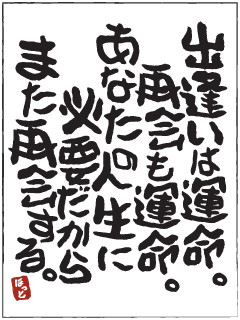 出逢いは運命。
再会も運命。
あなたの人生に
必要だから
また再会する。
ほっと